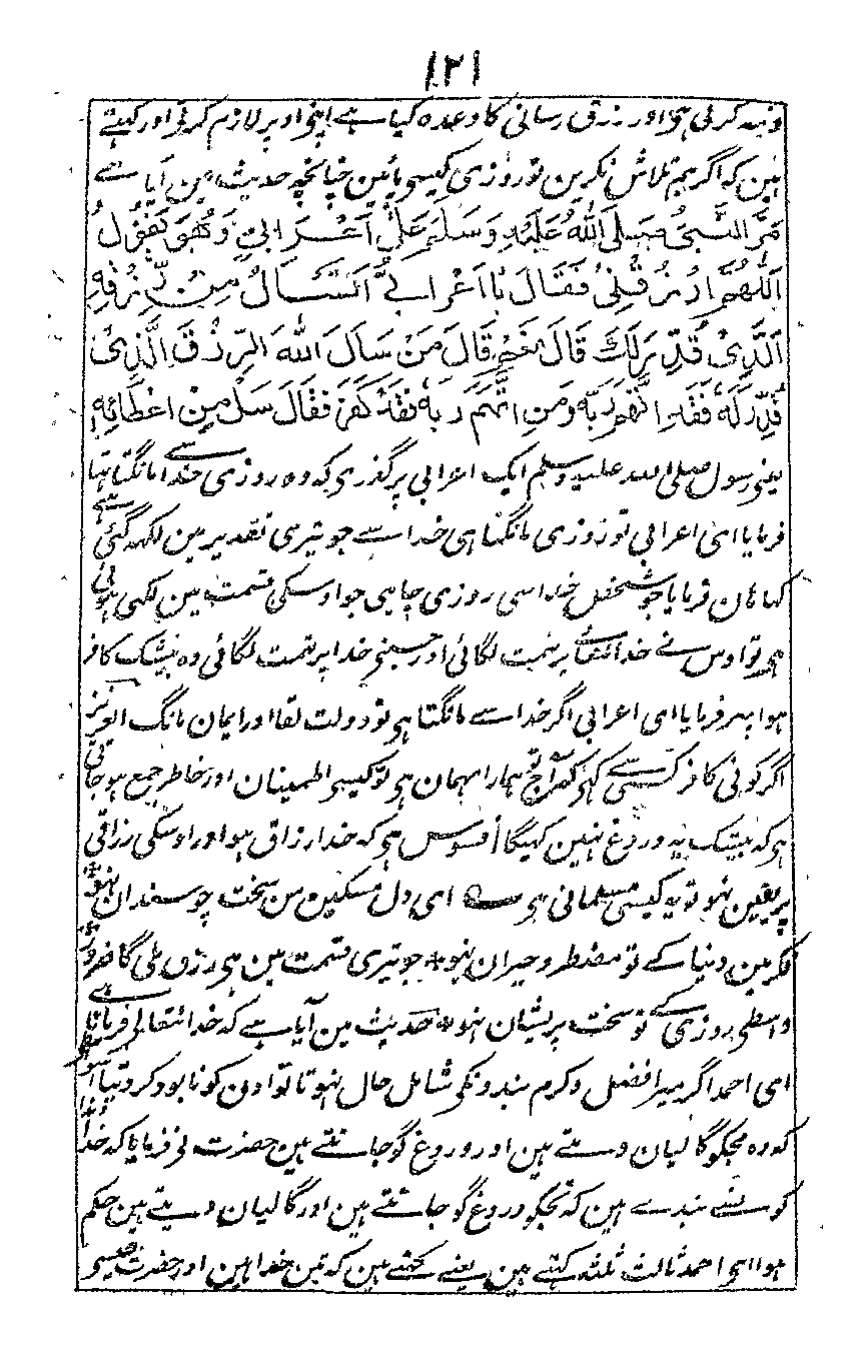 ۱۲۱
ذمہ کرلی ہی اور رزق رسانی کا وعدہ کیا ہے اپنی اوپر لازم کرلی اور کہتے
ہین کہ اگر ہم تلاش نکرین تو روزی کیسی پائین چنانچہ حدیث مین آیا ہے
مَرَّ النَّبِیُّ صَلَّی اللّٰهُ عَلَیْهِ وَسَلَّمَ عَلٰی اَعْرَابِیٍّ وَهُوَ یَقُوْلُ
اَللّٰهُمَّ ارْزُقْنِیْ فَقَالَ یَا اَعْرَابِیُّ اَتَسْئَالُ مِنْ رِّزْقِهِ
الَّذِیْ قُدِّرَ لَكَ قَالَ نَعَمْ قَالَ مَنْ سَاَلَ اللّٰهَ الرِّزْقَ الَّذِیْ
قُدِّرَ لَهٗ فَقَدِ اتَّهَمَ رَبَّهٗ وَمَنِ اتَّهَمَ رَبَّهٗ فَقَدْ کَفَرَ فَقَالَ سَلْ مِنْ اعْطَائِهِ
یعنی رسول صلی اللہ علیہ وسلم ایک اعرابی پر گذری کہ وہ روزی خدا سے مانگتا تہا
فرمایا ای اعرابی تو روزی مانگتا ہی خدا سے جو تیری تقدیر مین لکہہ گئی ہے
کہا ہان فرمایا جو شخص خدا سی روزی چاہی جو اوسکی قسمت مین لکہی ہوئی
ہی تو اوس نے خدا تعالے پر تہمت لگائی اور جسنی خدا پر تہمت لگائی وہ بیشک کافر
ہوا پہر فرمایا ای اعرابی اگر خدا سے مانگتا ہی تو دولت لقا اور ایمان مانگ العزیز
اگر کوئی کافر کسی سے کہی کہ آج تو ہمارا مہمان ہی تو کیسی اطمینان اور خاطر جمع ہو جاتی
ہی کہ بیشک یہ دروغ نہین کہیگا افسوس ہی کہ خدا رزاق ہو اور اوسکی رزاقی
پر یقین نہو تو یہ کیسی مسلمانی ہی ؎ ای دل مسکین من سخت چو سندان نہو
فکر مین دنیا کے تو مضطر و حیران نہو جو تیری قسمت مین ہی رزق ملی گا ضرور
واسطی روزی کے تو سخت پریشان نہو حدیث مین آیا ہے کہ خدا تعالی فرماتا ہے
ای احمد اگر میرا فضل و کرم بندونکی شامل حال نہوتا تو اون کو نابود کر دیتا
کہ وہ مجکو گالیان دیتے ہین اور دروغ گو جانتے ہین حضرت نی فرمایا کہ خدا
کونسے بندے ہین کہ تجکو دروغ گو جانتے ہین اور گالیان دیتے ہین حکم
ہوا ای احمد ثالث ثلثہ کہتے ہین یعنے کہتے ہین کہ تین خدا ہین اور حضرت عیسی